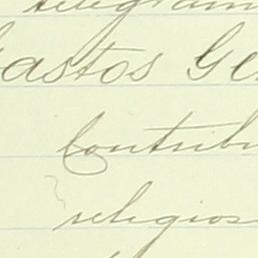 telegram
Gastos Ge
Contribu
religios